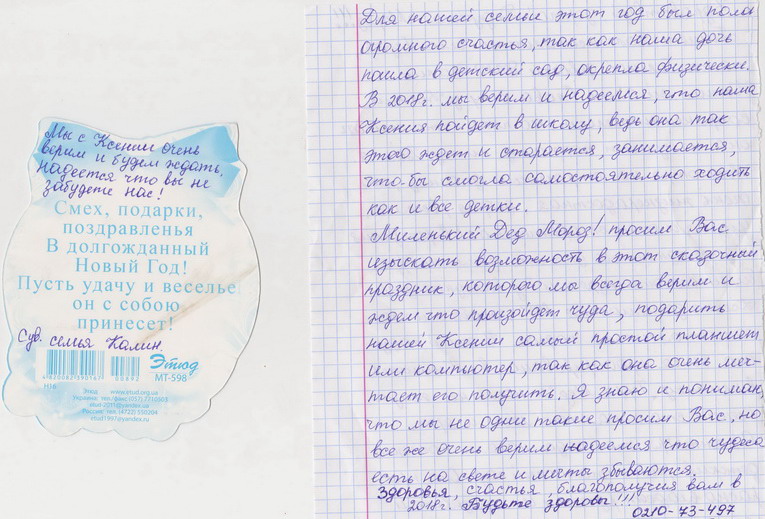 Мы с Ксенией очень
верим и будем ждать,
надеется что вы не
забудете нас!
Смех, подарки,
поздравленья
В долгожданный
Новый Год!
Пусть удачу и веселье
он с собою
принесет!
С ув. семья Калин.
Этюд
4820082590167 00692 МТ-598
Н16
Этюд www.etud.org.ua
Украина: тел./факс (057) 7210303
etud-2011@yandex.ua
Россия: тел. (4722) 550204
etud1997@yandex.ru
Для нашей семьи этот год был полон
огромного счастья, так как наша дочь
пошла в детский сад, окрепла физически.
В 2018г. мы верим и надеемся, что наша
Ксения пойдет в школу, ведь она так
этого ждет и старается, занимается,
что-бы смогла самостоятельно ходить
как и все детки.
Миленький Дед Мороз! просим Вас
изыскать возможность в этот сказочный
праздник, которого мы всегда верим и
ждем что произойдет чуда, подарить
нашей Ксении самый простой планшет
или компьютер, так как она очень меч-
тает его получить. Я знаю и понимаю,
что мы не одни такие просим Вас, но
все же очень верим надеемся что чудеса
есть на свете и мечты сбываются.
Здоровья, счастья, благополучия вам в
2018г. Будьте здоровы!!!
0210-73-497